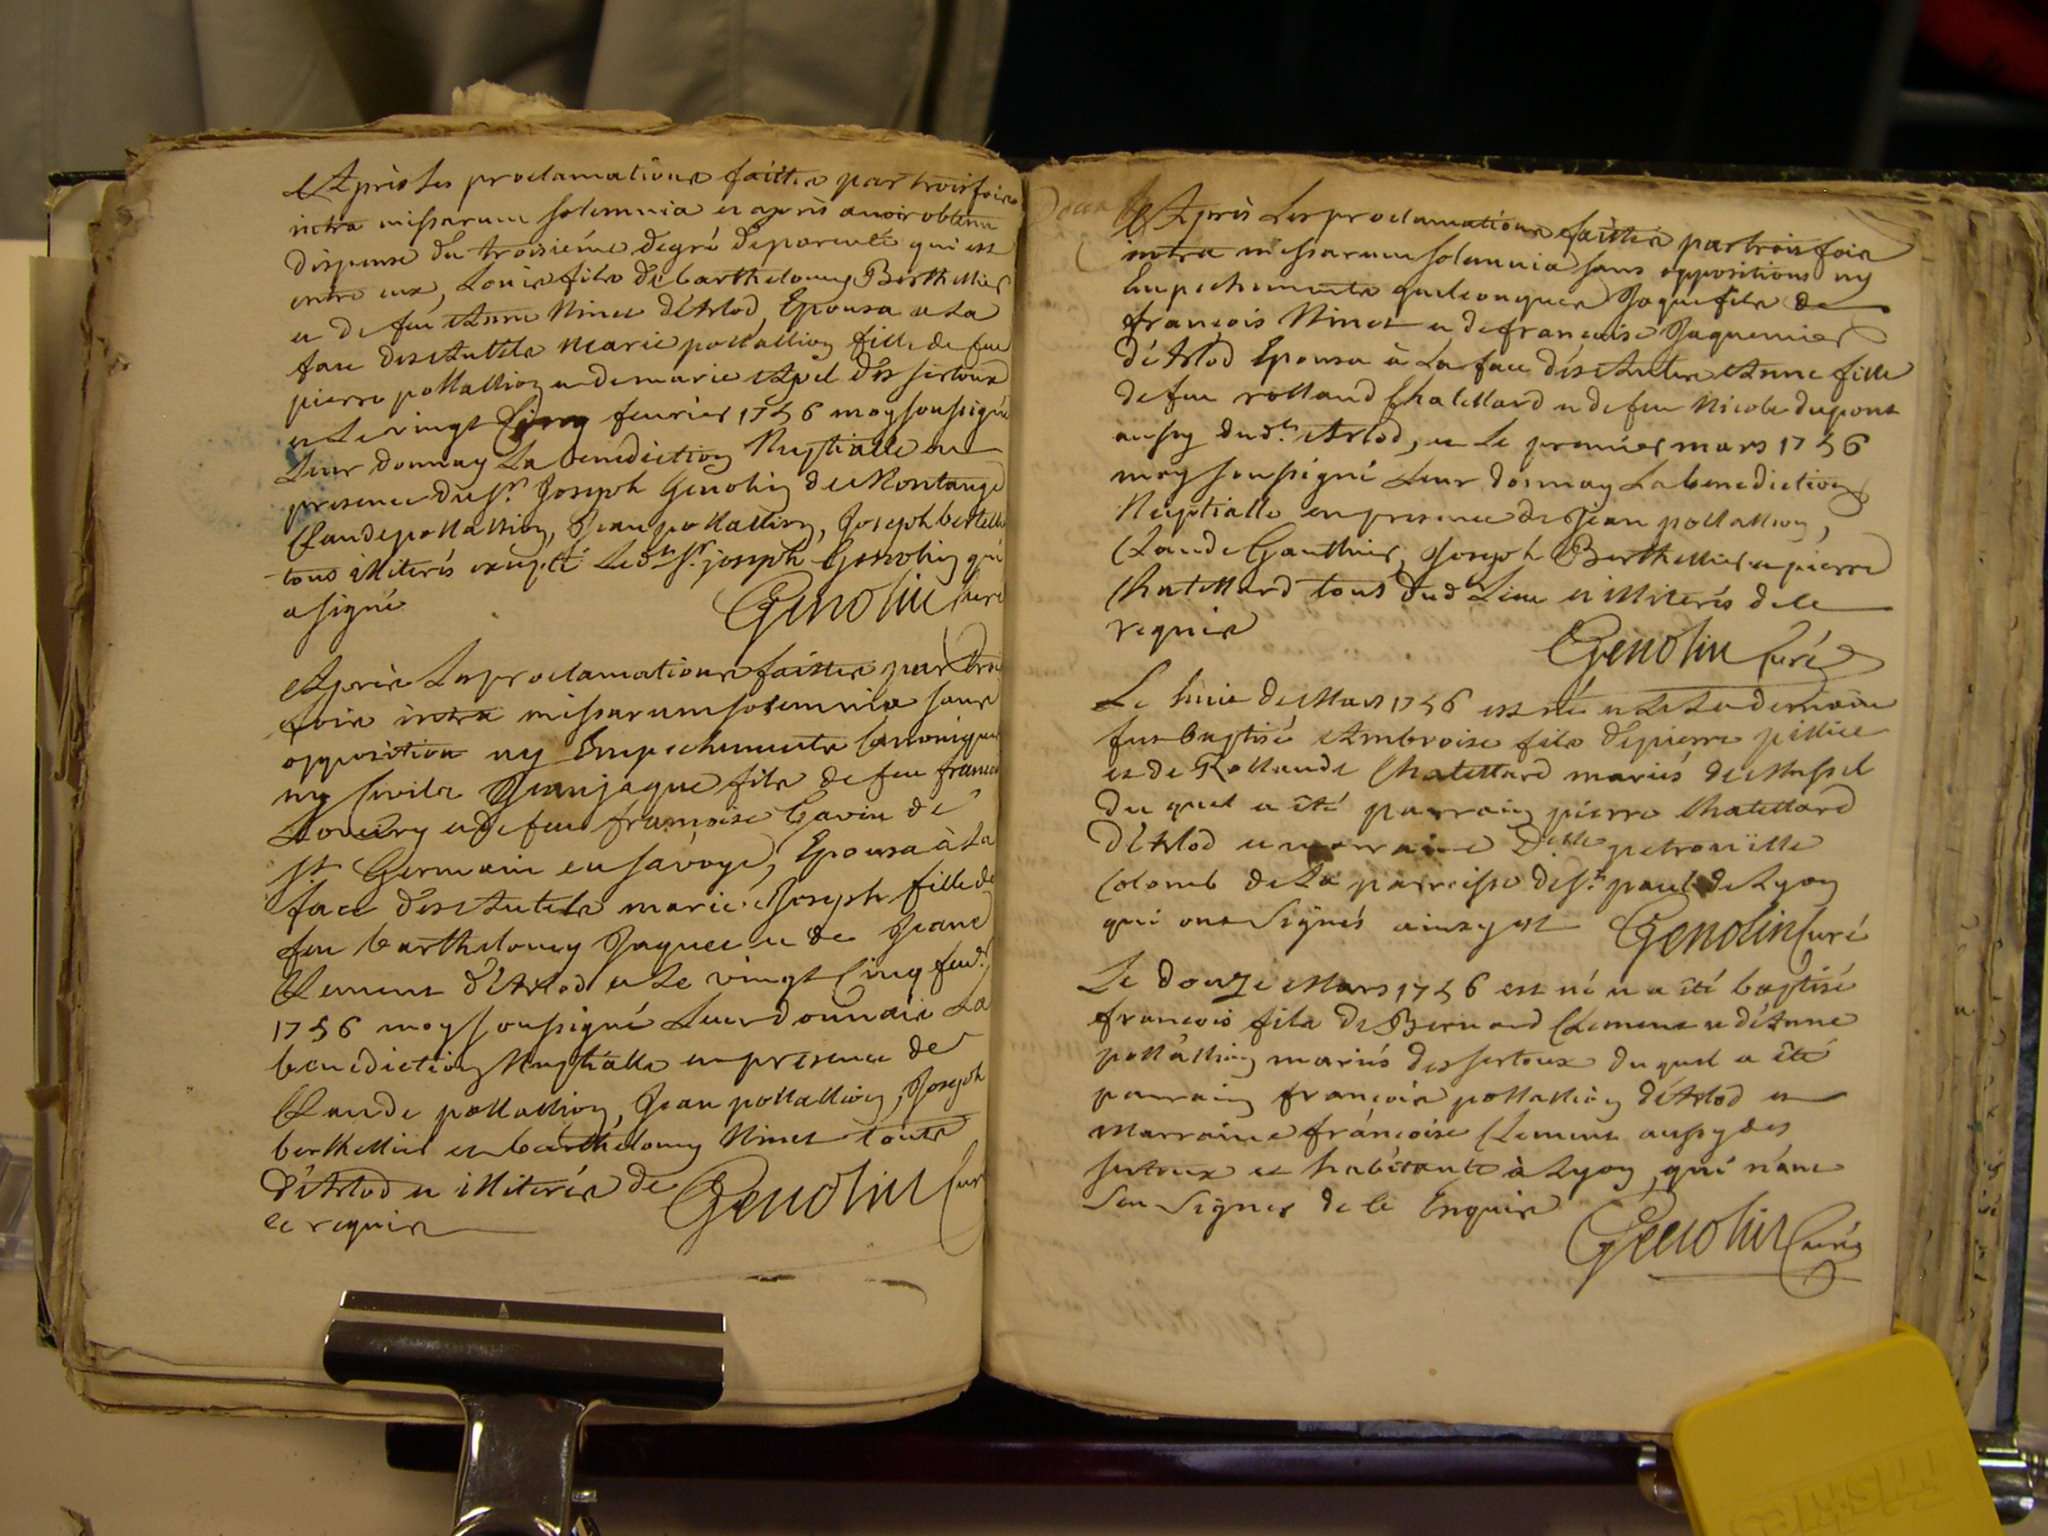 Après les proclamations faittes par trois fois
intra missarum solemnia et après avoir obtenu
dispense du troisiéme degré de parenté qui est
entre eux, Louis fils de barthelemy Berthellier
et de feu Anne Ninet d'Arlod, Epousa a La
face des Autels Marie pollallion fille de feu
pierre pollallion et de marie Apel des sertoux
et Le vingt Cinq fevrier 1756 moy soussigné
Leur donnay La benediction Nuptialle en
presence du Sr. Joseph Genolin de Montange
Claude pollallion, Jean pollallion, Joseph bertelli
tous illiterés excepté Ledt Sr. joseph Genolin qui
a signé Genolin Curé
Après Les proclamations faittes par trois
fois intra missarum solemnia sans
opposition ny Empechements Canoniques
ny Civils Jean jaque fils de feu francois
et de feu francoise Gavin de
St Germain en Savoye, Epousa à La
face des Autels marie Joseph fille de
feu barthelemy Jaquet et de Jeane
Clement d'Arlod et Le vingt Cinq fevr
1756 moy soussigné Leur donnais La
benediction Nuptialle en presence de
Claude pollallion, Jean pollallion, Joseph
berthellier et barthelemy Ninet touts
d'Arlod et illiterés de Genolin Cur
ce requis
Après Les proclamations faittes par trois fois
intra missarum solemnia sans oppositions ny
Empechements quelconques Jaque fils de
françois Ninet et de françoise Jaquemier
d'Arlod Epousa à La face des Autels Anne fille
de feu rolland Chatellard et de feu Nicole dupont
aussy dudt. Arlod, et Le premier mars 1756
moy soussigné Leur donnay La benediction
Nuptialle en presence de Jean pollallion,
Claude Gauthier, Joseph Berthellier et pierre
Chatellard tous dud Lieu et illiterés de ce
requis Genolin Curé
Le huit de Mars 1756 est né et Le Lendemain
fut baptisé Ambroise fils de pierre
et de Rollande Chatellard mariés de Mussel
du quel a été parrain pierre Chatellard
d'Arlod et marraine Delle petronille
Colomb de La parroisse de St. paul de Lyon
qui ont Signés ainsy est Genolin Curé
Le douze Mars 1756 est né et a été baptisé
francois fils de Bernard Clement et d'Anne
pollallion mariés des sertoux du quel a été
parrain françois pollallion d'Arlod et
Marraine françoise Clement aussy des
sertoux et habitante à Lyon, qui n'ont
Seu Signer de ce Enquis Genolin Curé